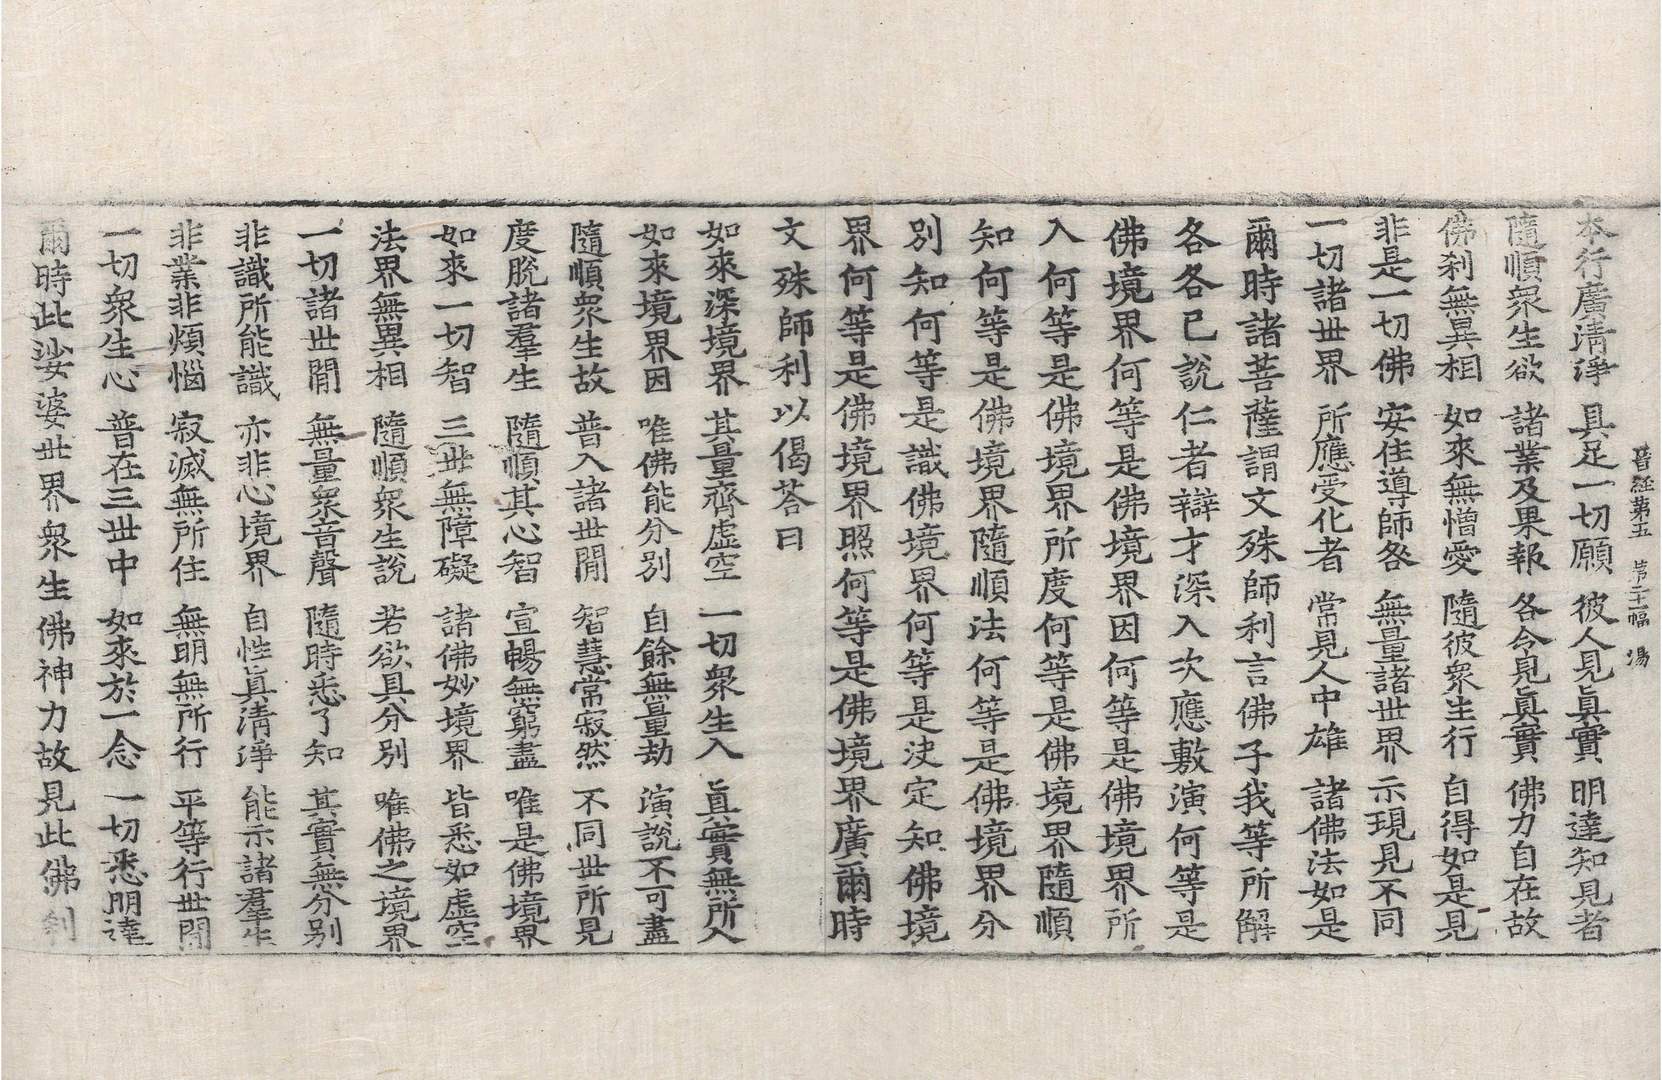 晉經第五　第二十一幅　湯
本行廣清淨　具足一切願　彼人見眞實　明達知見者
隨順衆生欲　諸業及果報　各令見眞實　佛力自在故
佛刹無異相　如來無憎愛　隨彼衆生行　自得如是見
非是一切佛　安住導師咎　無量諸世界　示現見不同
一切諸世界　所應受化者　常見人中雄　諸佛法如是
爾時諸菩薩謂文殊師利言佛子我等所解
各各已說仁者辯才深入次應敷演何等是
佛境界何等是佛境界因何等是佛境界所
入何等是佛境界所度何等是佛境界隨順
知何等是佛境界隨順法何等是佛境界分
別知何等是識佛境界何等是決定知佛境
界何等是佛境界照何等是佛境界廣爾時
文殊師利以偈荅曰
如來深境界　其量齊虛空　一切衆生入　眞實無所入
如來境界因　唯佛能分別　自餘無量劫　演說不可盡
隨順衆生故　普入諸世閒　智慧常寂然　不同世所見
度脫諸羣生　隨順其心智　宣暢無窮盡　唯是佛境界
如來一切智　三世無障礙　諸佛妙境界　皆悉如虛空
法界無異相　隨順衆生說　若欲具分別　唯佛之境界
一切諸世閒　無量衆音聲　隨時悉了知　其實無分別
非識所能識　亦非心境界　自性眞清淨　能示諸羣生
非業非煩惱　寂滅無所住　無明無所行　平等行世閒
一切衆生心　普在三世中　如來於一念　一切悉明達
爾時此娑婆世界衆生佛神力故見此佛刹